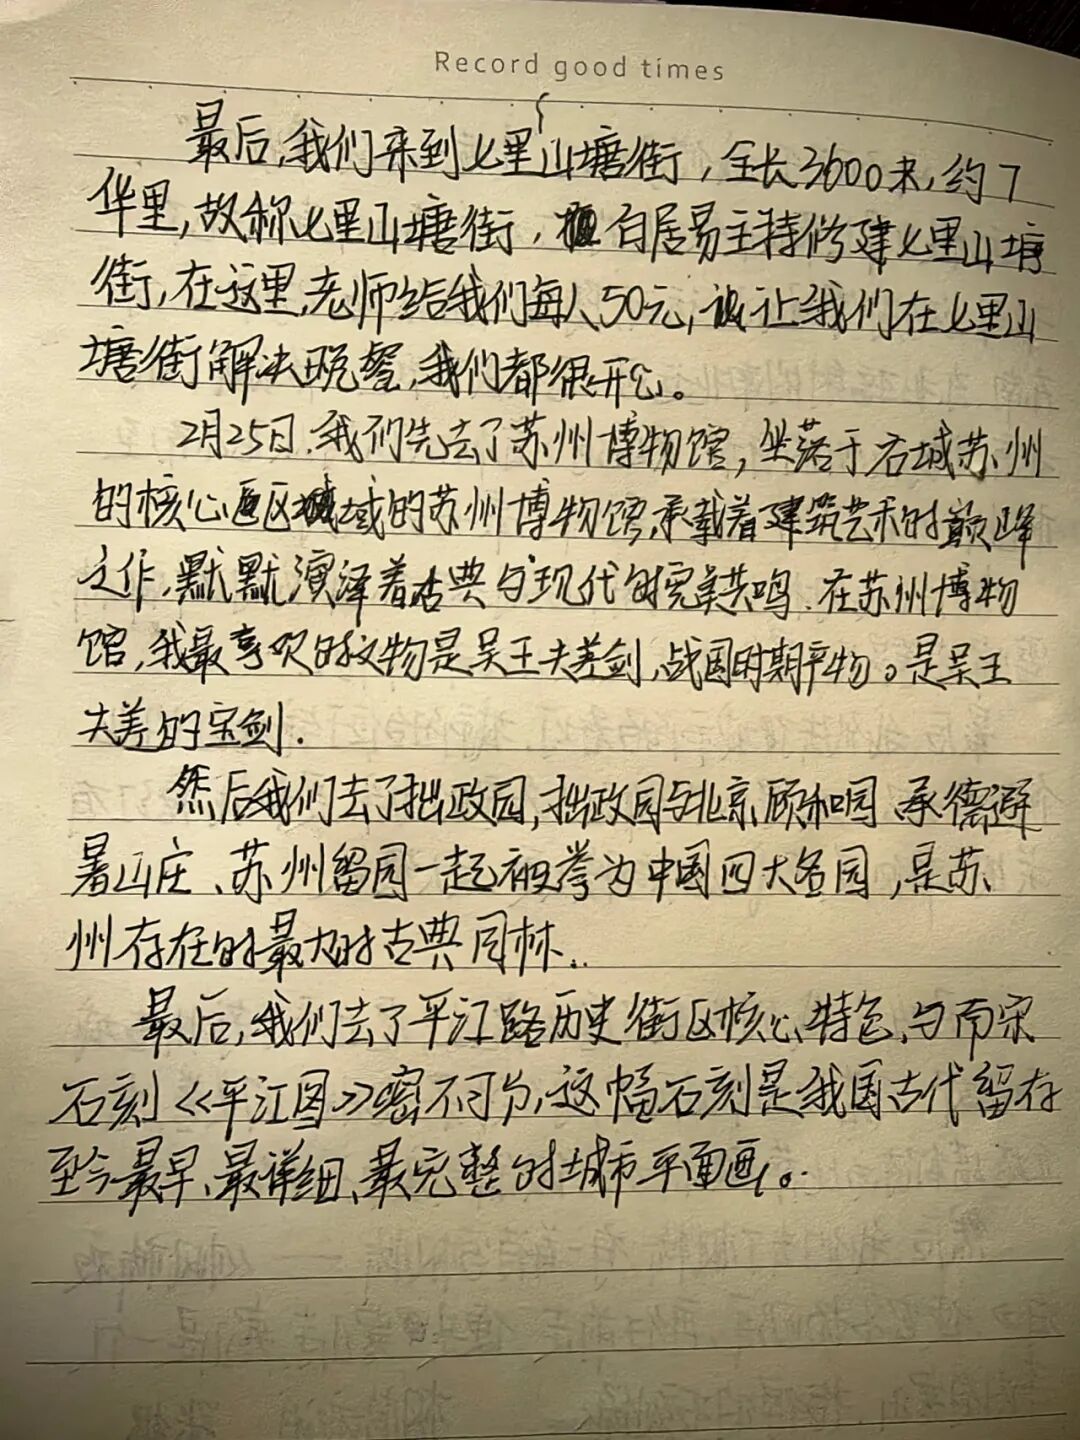 Record good times
最后,我们来到七里山塘街,全长3600米,约7
华里,故称七里山塘街,白居易主持修建七里山塘
街,在这里,老师给我们每人50元,让我们在七里山
塘街解决晚餐,我们都很开心。
2月25日.我们先去了苏州博物馆,坐落于古城苏州
的核心区域的苏州博物馆,承载着建筑艺术的巅峰
之作,默默演泽着古典与现代的完美共鸣.在苏州博物
馆,我最喜欢的文物是吴王夫差剑,战国时期产物。是吴王
夫差的宝剑.
然后我们去了拙政园,拙政园与北京颐和园、承德避
暑山庄、苏州留园一起被誉为中国四大名园,是苏
州存在的最大的古典园林..
最后,我们去了平江路历史街区核心特色,与南宋
石刻《平江图》密不可分,这幅石刻是我国古代留存
至今最早、最详细、最完整的城市平面画。